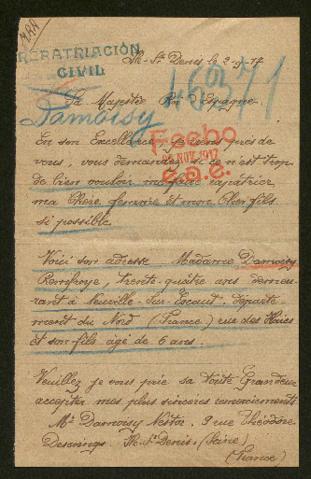 REPATRIACIÓN
CIVIL
St. Denis le 2-9-17
16371
Sa Majesté Roi d'Espagne.
Damoisy
En son Excellence, je viens près de
vous, vous demander si
Fecho
25 NOV. 1917
de bien vouloir me faire rapatrier
ma Chère femme et mon Cher fils
si possible
Voici son adresse Madame Damoisy
Remfroye, trente-quâtre ans demeu-
rant à Neuville-Sur-Escaut, départe-
ment du Nord (France) rue des Haies
et son fils âgé de 6 ans.
Veuillez je vous prie sa Toute Grandeur
accepter mes plus sincères remerciements
Mr Damoisy Nestor, 9 rue Théodore
St Denis, (Seine)
(France)